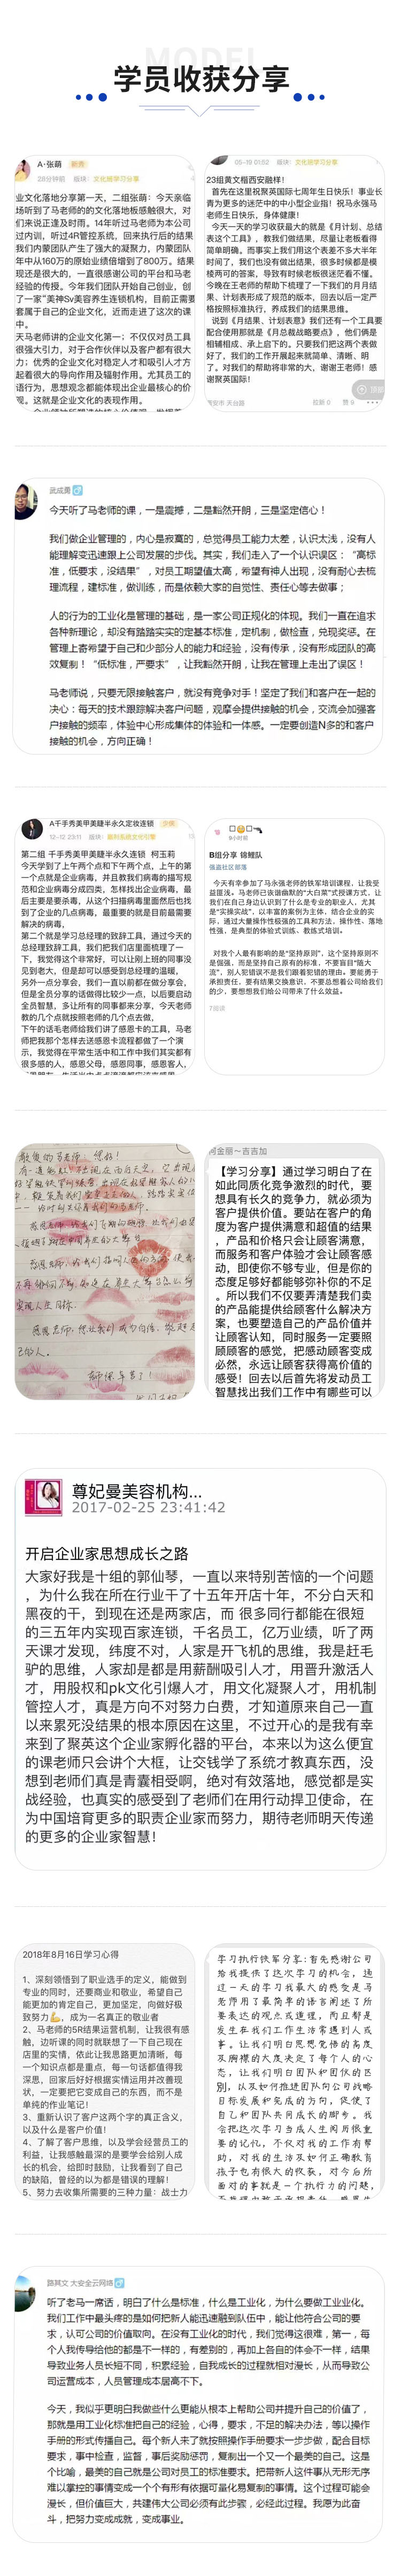 MODEL
学员收获分享
A·张萌
28分钟前 版块：文化班学习分享
业文化落地分享第一天，二组张萌：今天亲临
场听到了马老师的的文化落地板感触很大，对
们来说正逢及时雨。14年听过马老师为本公司
过内训，听过4R管控系统，回来执行后的结果
我们内蒙团队产生了强大的凝聚力，内蒙团队
年中从160万的原始业绩倍增到了800万。结果
现还是很大的，一直很感谢公司的平台和马老
经验的传授。今年我们团队开始自己创业，创
了一家"美神Sv美容养生连锁机构，目前正需要
套属于自己的企业文化，近而走进了这次的课
中。
天马老师讲的企业文化第一；不仅仅对员工具
很强大引力，对于合作伙伴以及客户都有很大
力；优秀的企业文化对稳定人才和吸引人才方
起着很大的导向作用及辐射作用。尤其员工的
语行为，思想观念都能体现出企业最核心的价
观。这就是企业文化的表现作用。
05-19 01:52 版块：文化班学习分享
23组黄文楷西安融祥！
首先在这里祝聚英国际七周年生日快乐！事业长
青为更多的迷茫中的中小型企业指！祝马永强马
老师生日快乐，身体健康！
今天一天的学习收获最大的就是《月计划、总结
表这个工具》，教我们做结果，尽量让老板看得
简单明确。而事实上我们用这个表差不多大半年
时间了，我们也没有做出结果，很多时候都是模
棱两可的答案，导致有时候老板很迷茫看不懂。
今晚在王老师的帮助下梳理了一下我们的月月结
果、计划表形成了规范的版本，回去以后一定严
格按照标准执行，养成我们的结果思维。
说到《月结果、计划表意》我们还有一个工具要
配合使用那就是《月总裁战略要点》，他们俩是
相辅相成、承上启下的。只要我们把这两个表做
好了，我们的工作开展起来就简单、清晰、明
了。对我们的帮助将非常的大，谢谢王老师！感
谢聚英国际！
西安市 天台路
武成勇
今天听了马老师的课，一是震撼，二是豁然开朗，三是坚定信心！
我们做企业管理的，内心是寂寞的，总觉得员工能力太差，认识太浅，没有人
能理解变迅速跟上公司发展的步伐。其实，我们走入了一个认识误区：“高标
准，低要求，没结果”，对员工期望值太高，希望有神人出现，没有耐心去梳
理流程，建标准，做训练，而是依赖大家的自觉性、责任心等去做事；
人的行为的工业化是管理的基础，是一家公司正规化的体现。我们一直在追求
各种新理论，却没有踏踏实实的定基本标准，定机制，做检查，兑现奖惩。在
管理上寄希望于自己和少部分人的能力和经验，没有传承，没有形成团队的高
效复制！“低标准，严要求”，让我豁然开朗，让我在管理上走出了误区！
马老师说，只要无限接触客户，就没有竞争对手！坚定了我们和客户在一起的
决心：每天的技术跟踪解决客户问题，观摩会提供接触的机会，交流会加强客
户接触的频率，体验中心形成集体的体验和一体感。一定要创造N多的和客户
接触的机会，方向正确！
A千手秀美甲美睫半永久定妆连锁
12-12 23:11 版块：盈利系统文化引擎
第二组 千手秀美甲美睫半永久连锁 柯玉莉
今天学到了上午两个点和下午两个点，上午的第
一个点就是企业病毒，并且教我们病毒的描写规
范和企业病毒分成四类，怎样找出企业病毒，最
后主要是要杀毒，从这个扫描病毒里面然后也找
到了企业的几点病毒，最重要的就是目前最需要
解决的病毒，
第二个就是学习总经理的致辞工具，通过今天的
总经理致辞工具，我们把我们店里面梳理了一
下，我觉得这个非常好，可以让刚上班的同事没
见到老大，但是却可以感受到总经理的温暖，
另外一点分享会，我们一直以前都在做分享会，
但是全员分享的话做得比较少一点，以后要启动
全员智慧，多让所有的同事都来分享，今天老师
教的几个点就按照老师的几个点去做，
下午的话毛老师给我们讲了感恩卡的工具，马老
师把我那个怎样去送感恩卡流程都做了一个演
示，我觉得在平常生活中和工作中我们其实都有
很多感的人，感恩父母，感恩同事，感恩客人，
8小时前
B组分享 锦鲤队
强盗社区部落
今天有幸参加了马永强老师的铁军培训课程，让我受
益匪浅。马老师已诙谐幽默的“大白菜”式授课方式，让
我们在自己身边认识到了什么是专业的职业人，尤其
是“实操实战”，以丰富的案例为主体，结合企业的实
际，通过大量操作性极强的工具和方法，操作性、落地
性强，是典型的体验式训练、教练式培训。
对我个人最有影响的是“坚持原则”，这个坚持原则不
是倔强，而是坚持自己原有的标准，不要盲目“随大
流”，别人犯错误不是我们跟着犯错的理由。要能勇于
承担责任，要有结果交换意识，不要总想着公司给我们
的少，要想想我们给公司带来了什么效益。
7招阅
何金丽～吉吉加
【学习分享】通过学习明白了在
如此同质化竞争激烈的时代，要
想具有长久的竞争力，就必须为
客户提供价值。要站在客户的角
度为客户提供满意和超值的结果
，产品和价格只会让顾客满意，
而服务和客户体验才会让顾客感
动，即使你不够专业，但是你的
态度足够好都能够弥补你的不足
。所以我们不仅要弄清楚我们卖
的产品能提供给顾客什么解决方
案，也要塑造自己的产品价值并
让顾客认知，同时服务一定要照
顾顾客的感觉，把感动顾客变成
必然，永远让顾客获得高价值的
感受！回去以后首先将发动员工
智慧找出我们工作中有哪些可以
尊妃曼美容机构...
2017-02-25 23:41:42
开启企业家思想成长之路
大家好我是十组的郭仙琴，一直以来特别苦恼的一个问题
，为什么我在所在行业干了十五年开店十年，不分白天和
黑夜的干，到现在还是两家店，而 很多同行都能在很短
的三五年内实现百家连锁，千名员工，亿万业绩，听了两
天课才发现，纬度不对，人家是开飞机的思维，我是赶毛
驴的思维，人家却是都是用薪酬吸引人才，用晋升激活人
才，用股权和pk文化引爆人才，用文化凝聚人才，用机制
管控人才，真是方向不对努力白费，才知道原来自己一直
以来累死没结果的根本原因在这里，不过开心的是我有幸
来到了聚英这个企业家孵化器的平台，本来以为这么便宜
的课老师只会讲个大框，让交钱学了系统才教真东西，没
想到老师们真是青囊相受啊，绝对有效落地，感觉都是实
战经验，也真实的感受到了老师们在用行动捍卫使命，在
为中国培育更多的职责企业家而努力，期待老师明天传递
的更多的企业家智慧！
2018年8月16日学习心得
1、深刻领悟到了职业选手的定义，能做到
专业的同时，还要商业和敬业，希望自己
能更加的肯定自己，更加坚定，向做好极
致努力💪，成为一名真正的敬业者
2、马老师的5R结果运营机制，让我很有感
触，边听课的同时就联想了一下自己现在
店里的实情，依此让我思路更加清晰，每
一个知识点都是重点，每一句话都值得我
深思，回家后好好根据实情运用并改善现
状，一定要把它变成自己的东西，而不是
单纯的作业笔记！
3、重新认识了客户这两个字的真正含义，
以及什么是客户价值！
4、了解了客户思维，以及学会经营员工的
利益，让我感触最深的是要学会给别人成
长的机会，给即时鼓励，让我看到了自己
的缺陷，曾经的以为都是错误的理解！
5、努力去收集所需要的三种力量：战士力
学习执行铁军分享：首先感谢公司
给我提供了这次学习的机会，通
过一天的学习我最大的感觉是马
老师用了最简单的语言阐述了所
要表达的观点或道理，而且都是
发生在我们工作生活常遇到人或
事。让我们明白思想觉悟的高度
及胸襟的大度决定了每个人的心
态，让我们明白团队和团伙的区
别，以及如何推进团队向公司战略
目标发展和完成的方向，促使了
自己和团队共同成长的脚步。我
会把这次学习当成人生阅历很重
要的记忆，不仅对我的工作有帮
助，对我的生活及如何正确教育
孩子也有很大的收获，对今后所
面对的事就是一个执行力的问题，
路其文 大安全云网络
听了老马一席话，明白了什么是标准，什么是工业化，为什么要做工业业化。
我们工作中最头疼的是如何把新人能迅速融到队伍中，能让他符合公司的要
求，认可公司的价值取向。在没有工业化的时代，我们觉得这很难，第一，每
个人我传导给他的都是不一样的，有差别的，再加上各自的体会不一样，结果
导致业务人员长短不同，积累经验，自我成长的过程就相对漫长，从而导致公
司运营成本，人员管理成本居高不下。
今天，我似乎更明白我做些什么更能从根本上帮助公司并提升自己的价值了，
那就是用工业化标准把自己的经验，心得，要求，不足的解决办法，等以操作
手册的形式传播自己。每个新人来了就按照操作手册要求一步步做，配合目标
要求，事中检查，监督，事后奖励惩罚，复制出一个又一个最美的自己。这是
个比喻，最美的自己就是公司对员工的标准要求。把带新人这件事从无形无序
难以掌控的事情变成一个个有形有依据可量化易复制的事情。这个过程可能会
漫长，但价值巨大，共建伟大公司必须有此步骤，必经此过程。我愿为此奋
斗，把努力变成成就，变成事业。